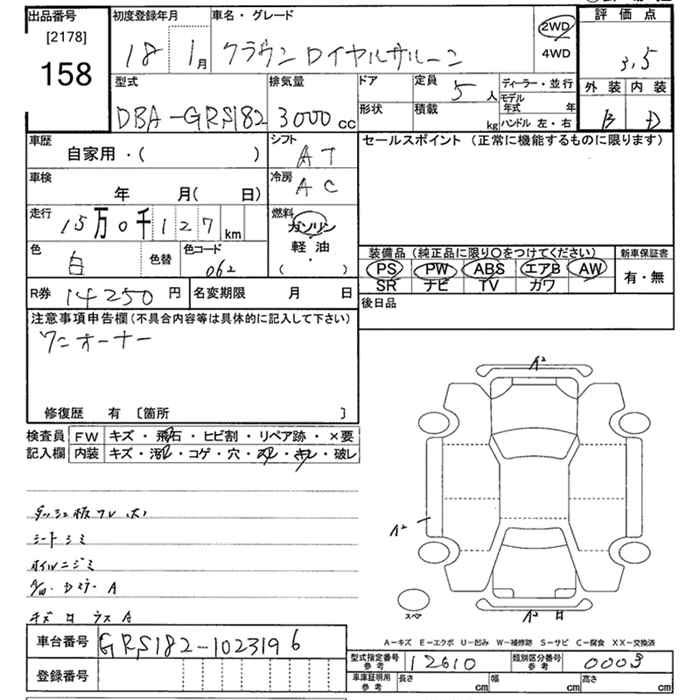 出品番号
[2178]
158
初度登録年月
18 1月
車名・グレード
クラウン ロイヤルサルーン
2WD
4WD
評価点
3.5
外装 内装
B D
型式
DBA-GRS182
排気量
3000cc
ドア
形状
定員 5人
積載 kg
ディーラー・並行
モデル年式 年
ハンドル 左・右
車歴
自家用・( )
シフト
AT
セールスポイント (正常に機能するものに限ります)
車検
年 月( 日)
冷房
AC
走行
15万0千127km
燃料
ガソリン
軽・油
( ・ )
色
白
色替
色コード
062
装備品(純正品に限り〇をつけてください)
PS PW ABS エアB AW
SR ナビ TV カワ
新車保証書
有・無
R券 14250円
名変期限 月 日
後日品
注意事項申告欄(不具合内容等は具体的に記入して下さい)
ワンオーナー
修復歴 有 〔箇所 〕
検査員
記入欄
FW キズ・飛石・ヒビ割・リペア跡・×要
内装 キズ・汚れ・コゲ・穴・スレ・キレ・破レ
シートシミ
オイルニジミ
A²
A²
スペア
A－キズ E－エクボ U－凹み W－補修跡 S－サビ C－腐食 XX－交換済
車台番号
GRS182-1023196
登録番号
型式指定番号
参考
12610
類別区分番号
参考
0003
車庫証明用
参考
長さ cm
幅 cm
高さ cm